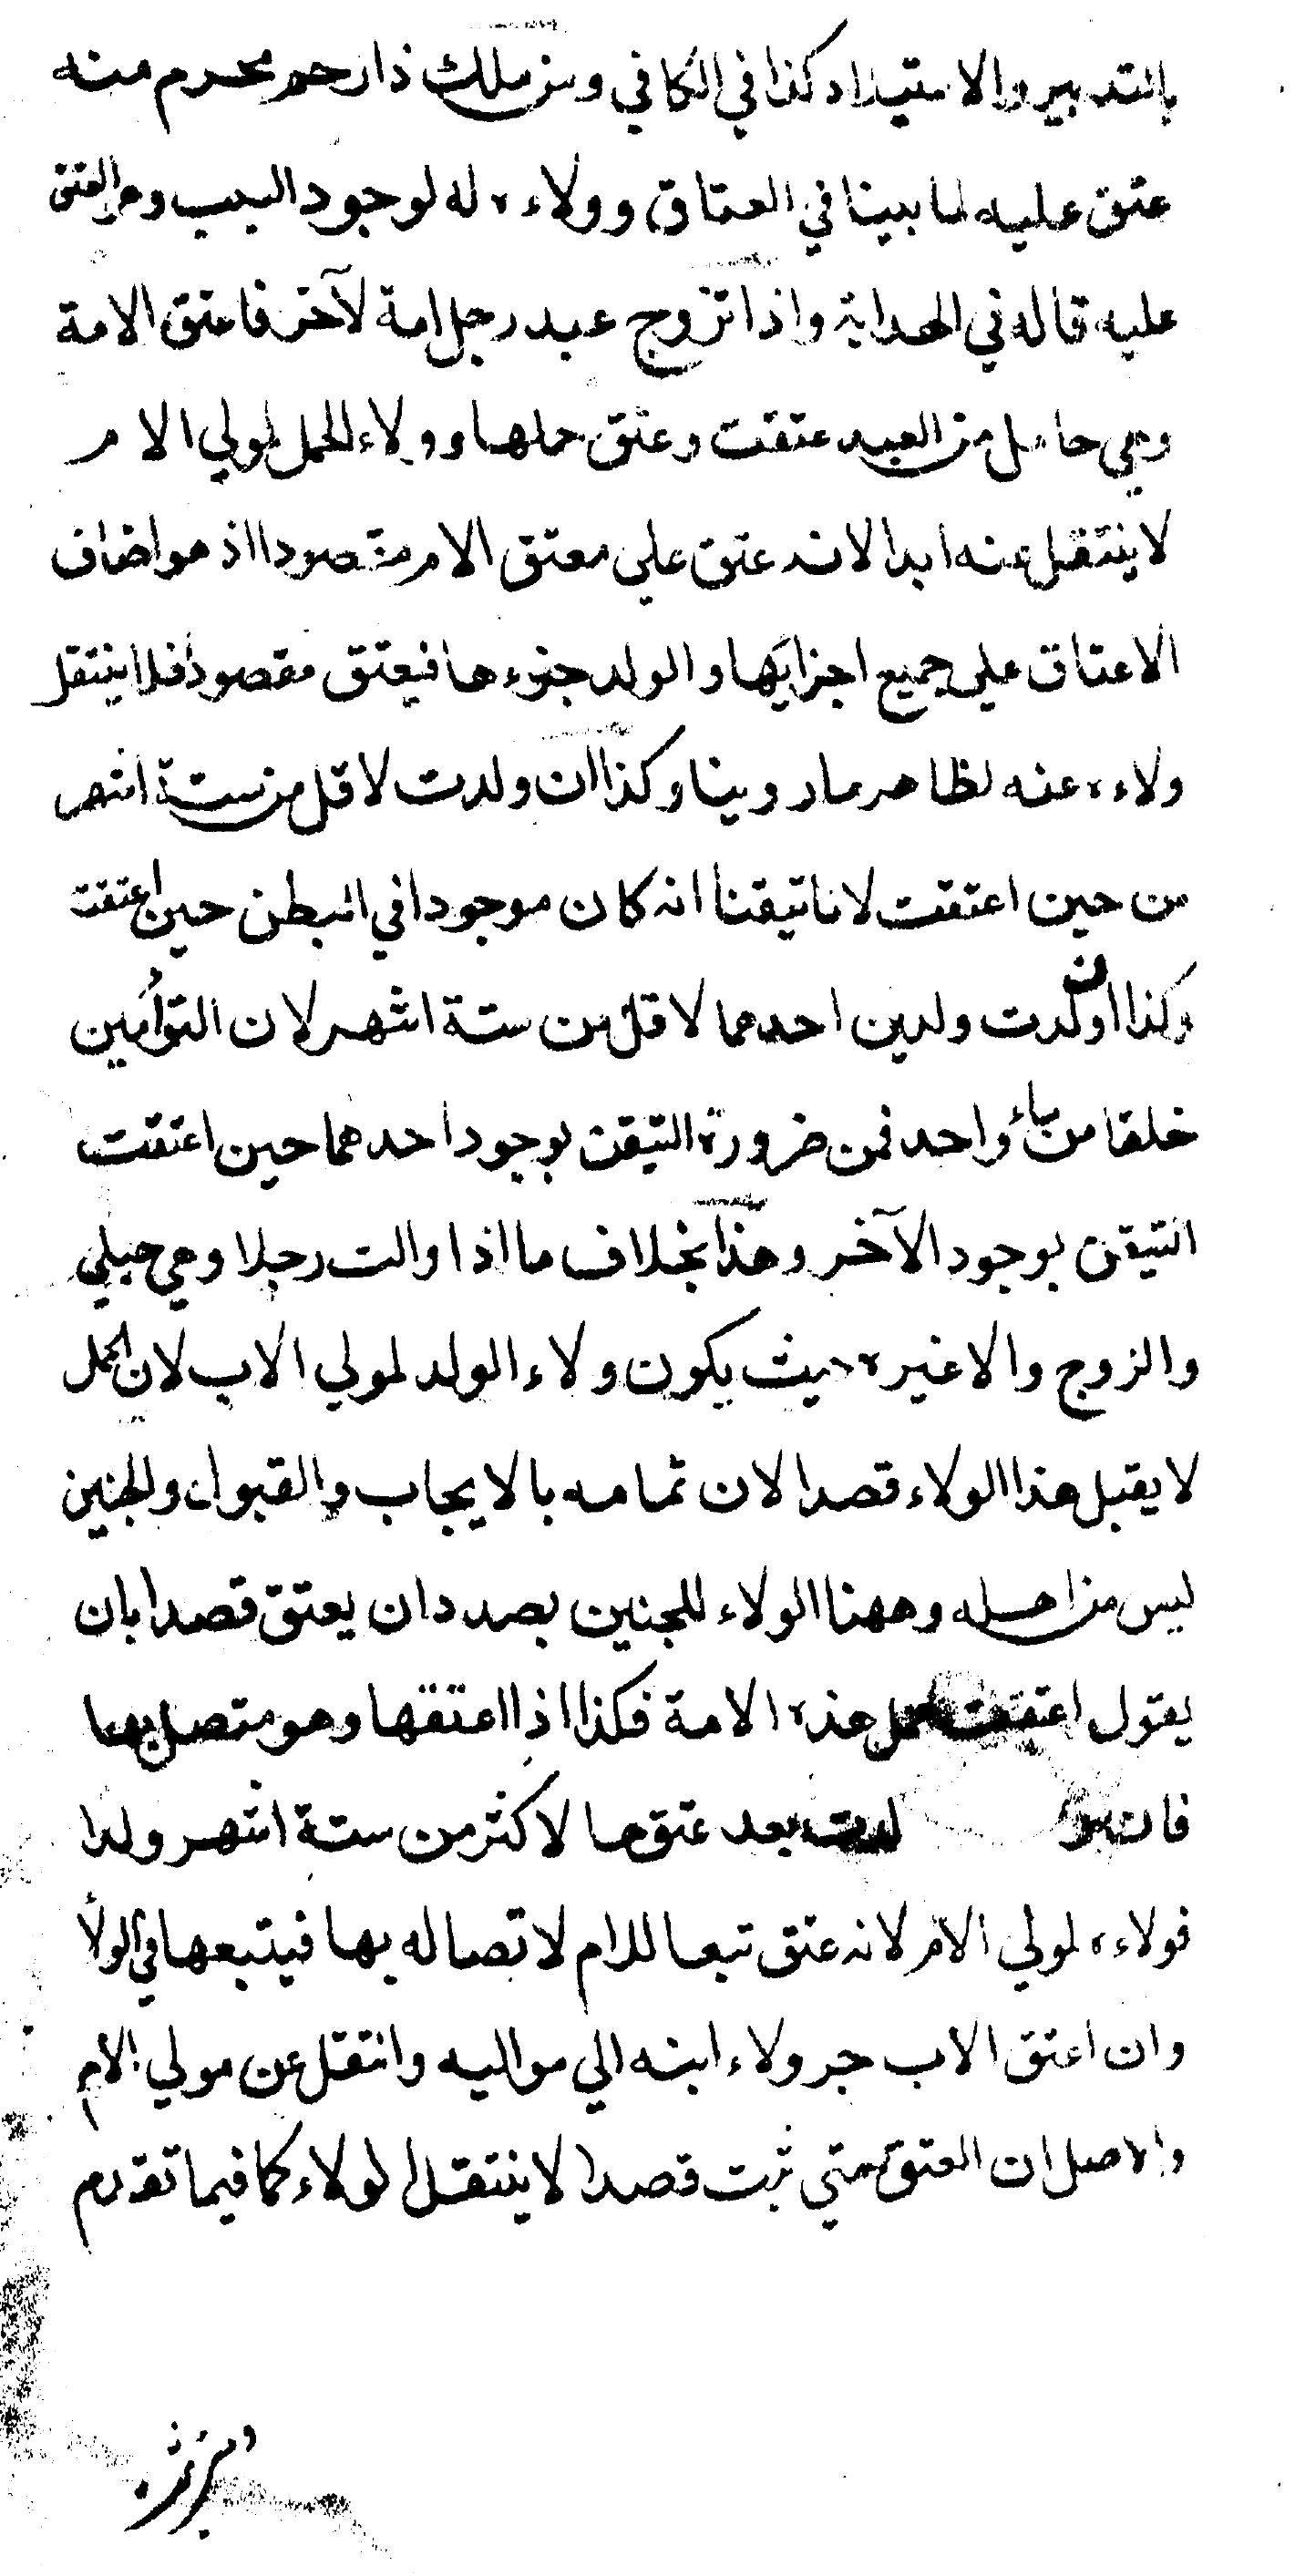 بالتدبير والاستيلاد كذا في الكافي ومن ملك ذا رحم محرم منه
عتق عليه لما بينا في العتاق وولاءه له لوجود السبب وهو العتق
عليه قاله في الهداية واذا تزوج عبد رجل امة لآخر فاعتق الامة
وهي حامل من العبد عتقت وعتق حملها وولاء الحمل لمولي الام
لا ينتقل عنه ابدا لانه عتق علي معتق الام مقصودا اذ هو اضاف
الاعتاق علي جميع اجزايها والولد جزءها فيعتق مقصودا فلا ينتقل
ولاءه عنه لظاهر ما روينا وكذا ان ولدت لاقل من ستة اشهر
من حين اعتقت لانا تيقنا انه كان موجودا في البطن حين اعتقت
وكذا ان ولدت ولدين احدهما لاقل من ستة اشهر لان التوأمين
خلقا من ماء واحد فمن ضرورة التيقن بوجود احدهما حين اعتقت
التيقن بوجود الآخر وهذا بخلاف ما اذا والت رجلا وهي حبلي
والزوج والا غيره حيث يكون ولاء الولد لمولي الاب لان الحمل
لا يقبل هذا الولاء قصدا لان تمامه بالايجاب والقبول والجنين
ليس من اهله وههنا الولاء للجنين بصدد ان يعتق قصدا بان
يقول اعتقت حمل هذه الامة فكذا اذا اعتقها وهو متصل بها
فان ولدت بعد عتقها لاكثر من ستة اشهر ولدا
فولاءه لمولي الام لانه عتق تبعا للام لاتصاله بها فيتبعها في الولأ
وان اعتق الاب جر ولاء ابنه الي مواليه وانتقل عن مولي الام
والاصل ان العتق متي ثبت قصدا لا ينتقل الولاء كما فيما تقدم